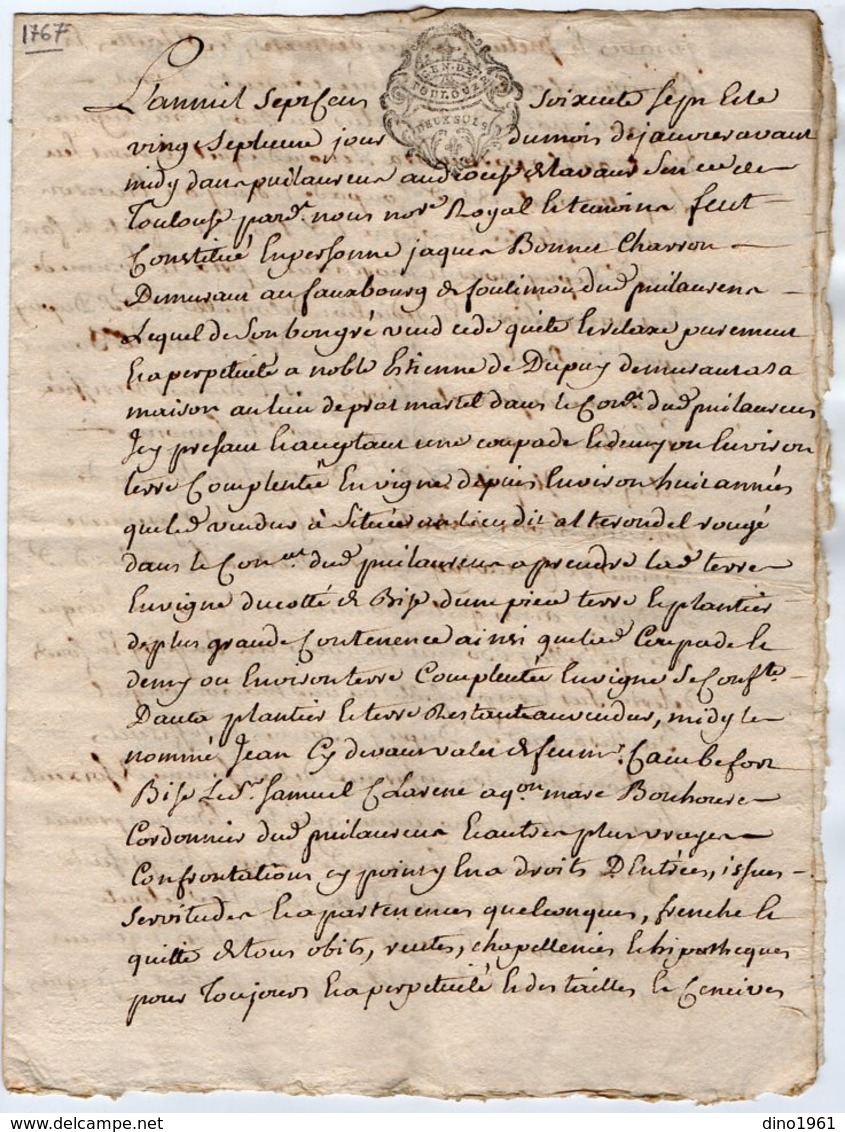 1767
GEN. DE
TOULOUZE
DEUX SOLS
L'an mil sept cens soixente sept et le
vingt septieme jour du mois de janvier avant
midy dans puilaurens au dioceze de lavaur sen.ée de
Toulouse pard.t nous no.re Royal et temoins feut
Constitué en personne jaques Bonnet Charron
Demurant au fauxbourg de foulimou dud puilaurens
Lequel de son bon gré vend cede quite et relaxe purement
et a perpetuité a noble Etienne de Dupuy demurant a sa
maison au lieu de prat martel dans le Con.at dud puilaurens
Icy present et aceptant une coupade et demy ou environ
terre Complentée en vigne depuis environ huit années
que led vendur à située au lieu dit al terondel rougé
dans le Con.at dud puilaurens a prendre lad terre
en vigne du cotté de Bise d'une piece terre et plantier
de plus grande Contenence ainsi que lad Coupade et
demy ou environ terre Complentée en vigne se Conf.te
D'auta plantier et terre Restante au vendur, midy le
nommé Jean Cy devant valet de feu m.r Cambefort
Bise le S.r Samuel Clarene aq.on marc Bonhoure
Cordonnier dud puilaurens et autres plus vrayes
Confrontations cy point y en a droits D'Entrées, issues
Servitudes et apartenences quelconques, frenche et
quitte de tous obits, rentes, chapellenies et hipotheques
pour Toujours et a perpetuité et des tailles et Censives
dino1961